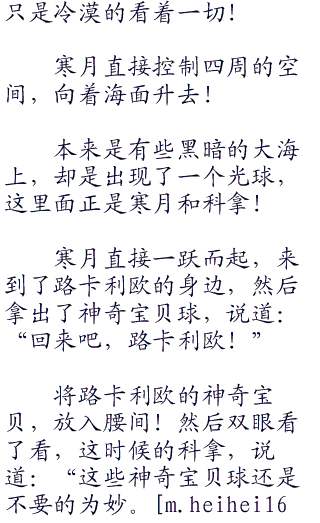 只是冷漠的看着一切！
寒月直接控制四周的空
间，向着海面升去！
本来是有些黑暗的大海
上，却是出现了一个光球，
这里面正是寒月和科拿！
寒月直接一跃而起，来
到了路卡利欧的身边，然后
拿出了神奇宝贝球，说道：
“回来吧，路卡利欧！”
将路卡利欧的神奇宝
贝，放入腰间！然后双眼看
了看，这时候的科拿，说
道：“这些神奇宝贝球还是
不要的为妙。[m.heihei16